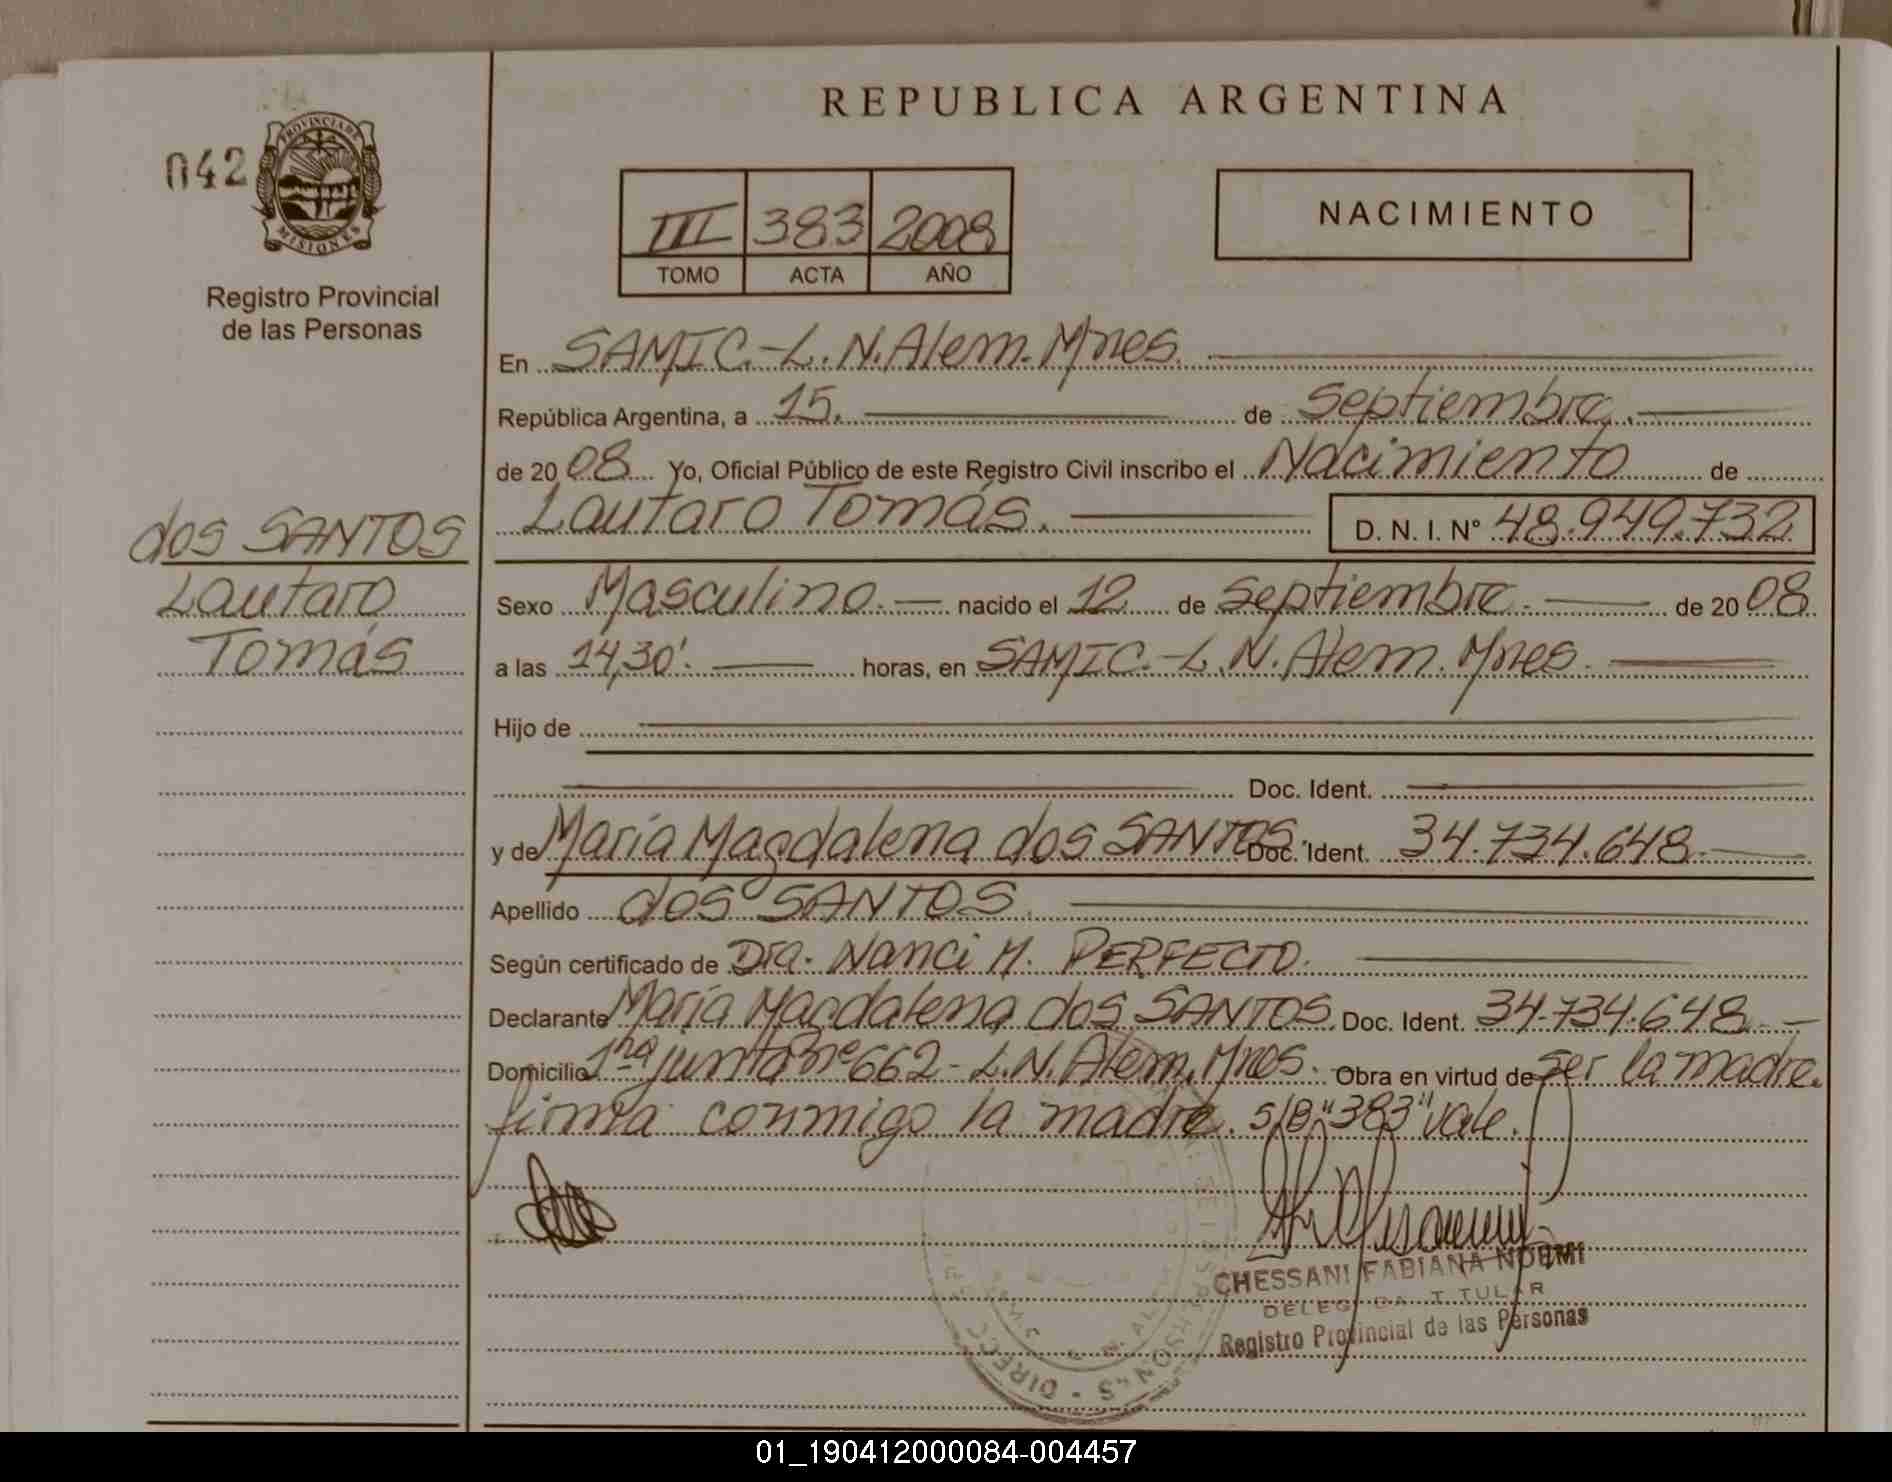 REPUBLICA ARGENTINA
042
PROVINCIA DE
MISIONES
Registro Provincial
de las Personas
III 383 2008
TOMO ACTA AÑO
NACIMIENTO
dos SANTOS
Lautaro
Tomás
En SAMIC.-L.N.Alem.Mnes.
República Argentina, a 15. de Septiembre.
de 2008 Yo, Oficial Público de este Registro Civil inscribo el Nacimiento de
Lautaro Tomás. D. N. I. N° 48.949.732
Sexo Masculino.- nacido el 12 de Septiembre. de 2008
a las 14,30'. horas, en SAMIC.-L.N.Alem.Mnes.
Hijo de
Doc. Ident.
y de María Magdalena dos SANTOS. Doc. Ident. 34.734.648.
Apellido dos SANTOS.
Según certificado de Dra. Nanci M. PERFECTO.
Declarante María Magdalena dos SANTOS. Doc. Ident. 34.734.648.-
Domicilio 1ra junta nº 662- L.N.Alem.Mnes. Obra en virtud de ser la madre.
firma conmigo la madre. s/B."383"vale.
CHESSANI FABIANA NOEMI
DELEGADA TITULAR
Registro Provincial de las Personas
01_190412000084-004457